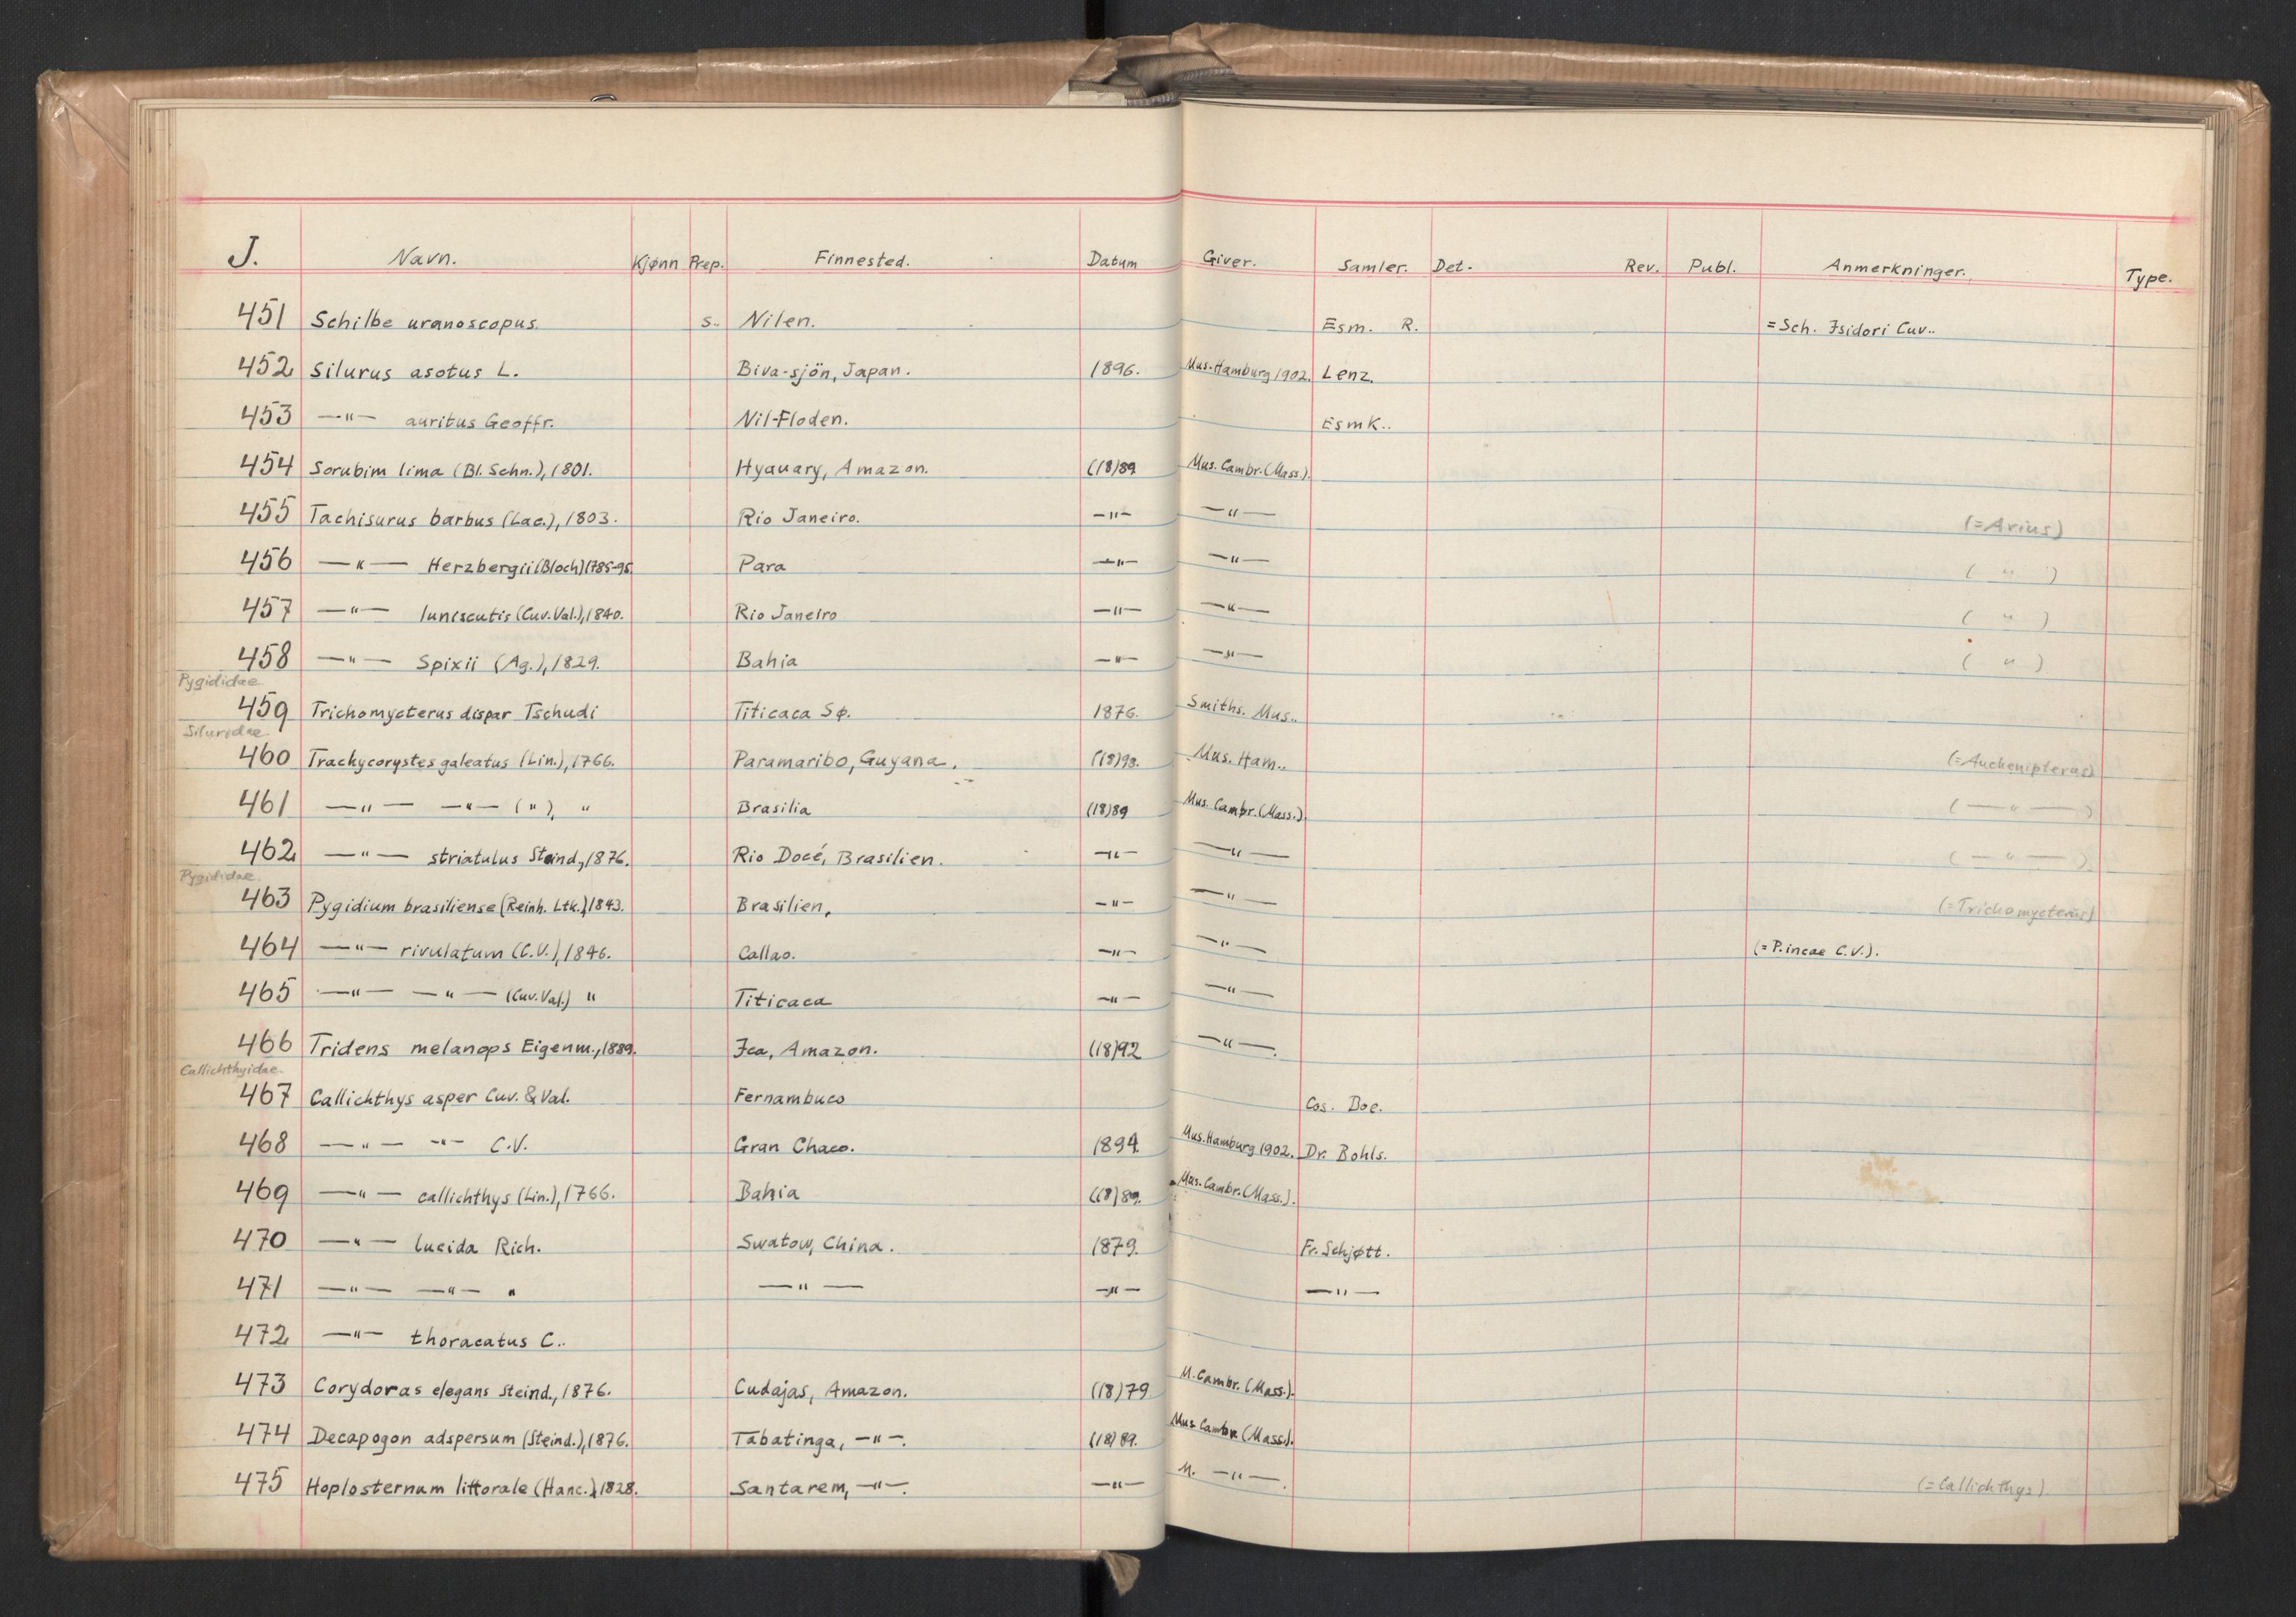 J. Navn. Kjønn Prep. Finnested. Datum Giver. Samler. Det. Rev. Publ. Anmerkninger. Type.
451 Schilbe uranoscopus. S.. Nilen. Esm. R. =Sch. Isidori Cuv..
452 Silurus asotus L. Biva-sjön, Japan. 1896. Mus. Hamburg 1902. Lenz.
453 —"— auritus Geoffr. Nil-Floden. Esmk..
454 Sorubim lima (Bl. Schn.), 1801. Hyauary, Amazon. (18)89 Mus. Cambr. (Mass.).
455 Tachisurus barbus (Lac.), 1803. Rio Janeiro. —"— —"— (=Arius)
456 —"— Herzbergii (Bloch) 1785-95. Para —"— —"— ( " )
457 —"— luniscutis (Cuv. Val.), 1840. Rio Janeiro —"— —"— ( " )
458 —"— Spixii (Ag.), 1829. Bahia —"— —"— ( " )
Pygididae
459 Trichomycterus dispar Tschudi Titicaca Sø. 1876. Smiths. Mus..
Siluridae.
460 Trachycorystes galeatus (Lin.), 1766. Paramaribo, Guyana. (18)93. Mus. Ham.. (=Auchenipterus)
461 —"— —"— ("), " Brasilia (18)89 Mus. Cambr. (Mass.) (—"—)
462 —"— striatulus Steind., 1876. Rio Docé, Brasilien. —"— —"— (—"—)
Pygididae.
463 Pygidium brasiliense (Reinh. Ltk.) 1843. Brasilien. —"— —"— (=Trichomycterus)
464 —"— rivulatum (C.V.), 1846. Callao. —"— —"— (=P. incae C.V.).
465 —"— —"— (Cuv. Val.) " Titicaca —"— —"—
466 Tridens melanops Eigenm., 1889. Ica, Amazon. (18)92 —"—.
Callichthyidae.
467 Callichthys asper Cuv. & Val. Fernambuco Cos. Boe.
468 —"— —"— C.V. Gran Chaco. 1894. Mus. Hamburg 1902. Dr. Bohls.
469 —"— callichthys (Lin.), 1766. Bahia (18)89. Mus. Cambr. (Mass.).
470 —"— lucida Rich. Swatow, China. 1879. Fr. Schjøtt.
471 —"— —"— " —"— —"— —"—
472 —"— thoracatus C..
473 Corydoras elegans Steind., 1876. Cudajas, Amazon. (18)79 M. Cambr. (Mass.).
474 Decapogon adspersum (Steind.), 1876. Tabatinga, —"—. (18)89. Mus Cambr (Mass.).
475 Hoplosternum littorale (Hanc.), 1828. Santarem, —"—. —"— M. —"—. (=Callichthys)